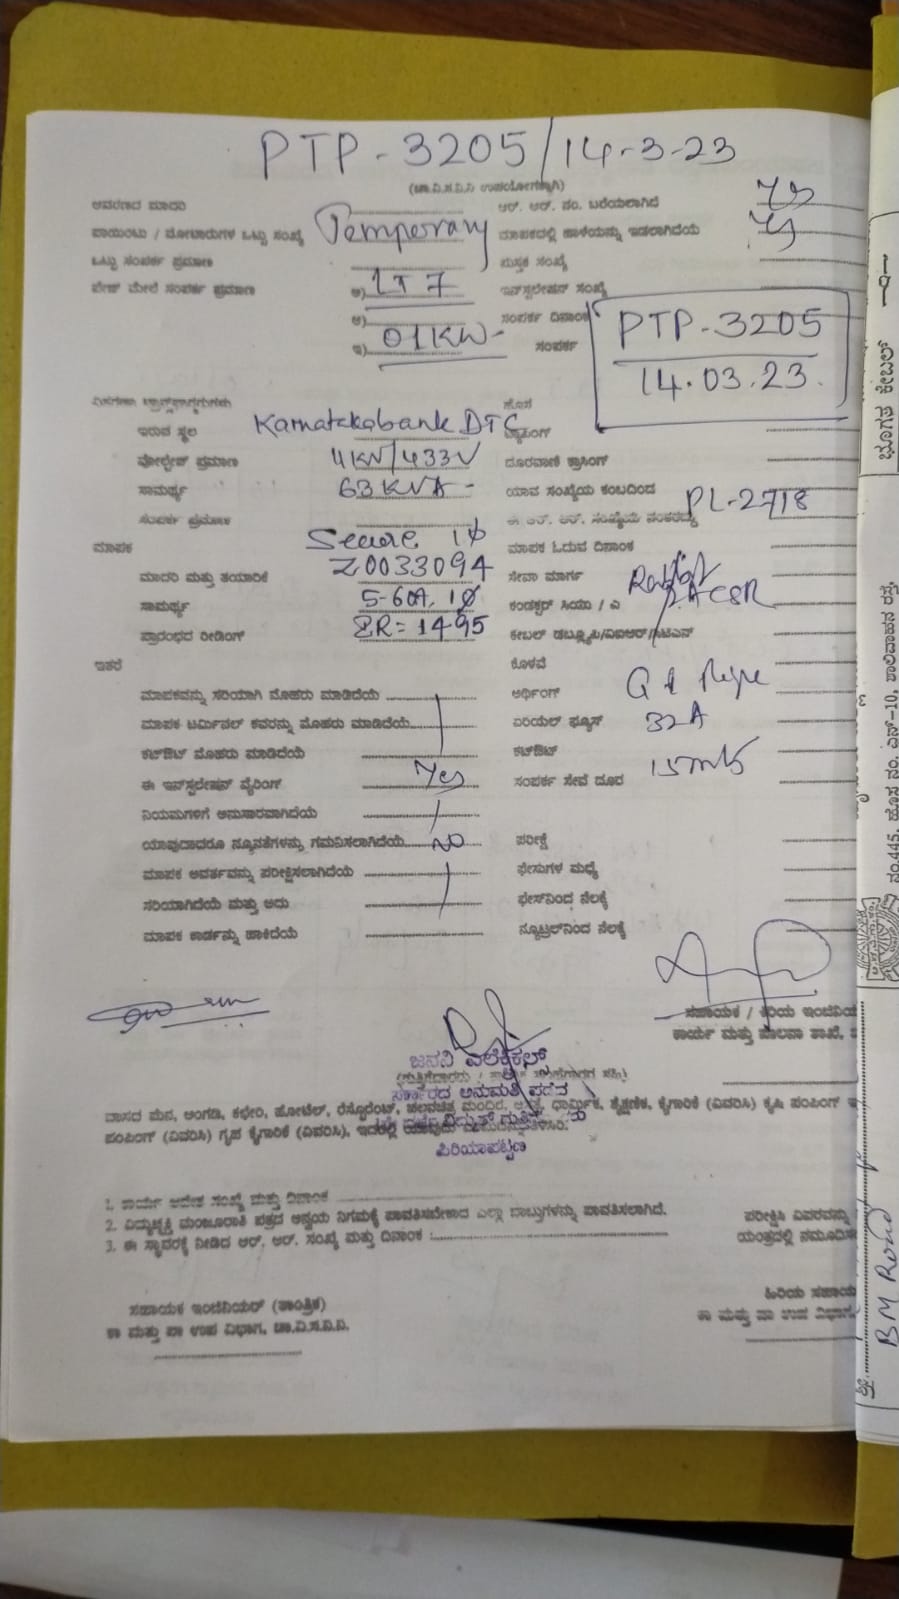 PTP - 3205/14-3-23
(ಚಾ.ವಿ.ಸ.ನಿ.ನಿ ಉಪಯೋಗಕ್ಕಾಗಿ)
ಆವರಣದ ಮಾದರಿ ಆರ್. ಆರ್. ನಂ. ಬರೆಯಲಾಗಿದೆ yes
ಪಾಯಿಂಟು / ಮೋಟಾರುಗಳ ಒಟ್ಟು ಸಂಖ್ಯೆ Temperary ಮಾಪಕದಲ್ಲಿ ಹಾಳೆಯನ್ನು ಇಡಲಾಗಿದೆಯೆ
ಒಟ್ಟು ಸಂಪರ್ಕ ಪ್ರಮಾಣ ಪುಸ್ತಕ ಸಂಖ್ಯೆ
ಪೇಜ್ ಮೇಲೆ ಸಂಪರ್ಕ ಪ್ರಮಾಣ ಅ) LT 7 ಇನ್‌ಸ್ಟಲೇಷನ್ ಸಂಖ್ಯೆ
ಆ) ಸಂಪರ್ಕ ದಿನಾಂಕ PTP-3205
ಇ) 01KW- ಸಂಪರ್ಕ 14.03.23.
ಇರುವ ಸ್ಥಲ Karnatakabank DTC ಟ್ಯಾಪಿಂಗ್
ವೋಲ್ಟೇಜ್ ಪ್ರಮಾಣ 11KV/433V ದೂರವಾಣಿ ಕ್ರಾಸಿಂಗ್
ಸಾಮರ್ಥ್ಯ 63KVA- ಯಾವ ಸಂಖ್ಯೆಯ ಕಂಬದಿಂದ PL-2718
ಸಂಪರ್ಕ ಪ್ರಮಾಣ ಈ ಆರ್. ಆರ್. ಸಂಖ್ಯೆಯ
ಮಾಪಕ Secure 1φ ಮಾಪಕ ಓದುವ ದಿನಾಂಕ
ಮಾದರಿ ಮತ್ತು ತಯಾರಿಕೆ Z0033094 ಸೇವಾ ಮಾರ್ಗ Rabbit
ಸಾಮರ್ಥ್ಯ 5-60A, 1φ ಕಂಡಕ್ಟರ್ ಸಿಯು / ಎ ACSR
ಪ್ರಾರಂಭದ ರೀಡಿಂಗ್ IR= 1495 ಕೇಬಲ್ ಡಬ್ಲ್ಯೂಪಿ/ವಿಐಆರ್/
ಇತರೆ ಕೊಳವೆ
ಮಾಪಕವನ್ನು ಸರಿಯಾಗಿ ಮೊಹರು ಮಾಡಿದೆಯೆ ಅರ್ಥಿಂಗ್ GI Pipe
ಮಾಪಕ ಟರ್ಮಿನಲ್ ಕವರನ್ನು ಮೊಹರು ಮಾಡಿದೆಯೆ ಏರಿಯಲ್ ಫ್ಯೂಸ್ 32A
ಕಟ್‌ಔಟ್ ಮೊಹರು ಮಾಡಿದೆಯೆ ಕಟ್‌ಔಟ್
ಈ ಇನ್‌ಸ್ಟಲೇಷನ್ ವೈರಿಂಗ್ Yes ಸಂಪರ್ಕ ಸೇವೆ ದೂರ 15mts
ನಿಯಮಗಳಿಗೆ ಅನುಸಾರವಾಗಿದೆಯೆ
ಯಾವುದಾದರೂ ನ್ಯೂನತೆಗಳನ್ನು ಗಮನಿಸಲಾಗಿದೆಯೆ NO ಪರೀಕ್ಷೆ
ಮಾಪಕ ಆವರ್ತವನ್ನು ಪರೀಕ್ಷಿಸಲಾಗಿದೆಯೆ ಫೇಸುಗಳ ಮಧ್ಯೆ
ಸರಿಯಾಗಿದೆಯೆ ಮತ್ತು ಅದು ಫೇಸ್‌ನಿಂದ ನೆಲಕ್ಕೆ
ಮಾಪಕ ಕಾರ್ಡನ್ನು ಹಾಕಿದೆಯೆ ನ್ಯೂಟ್ರಲ್‌ನಿಂದ ನೆಲಕ್ಕೆ
ಸಹಾಯಕ / ಕಿರಿಯ ಇಂಜಿನಿಯ
ಕಾರ್ಯ ಮತ್ತು ಪಾಲನಾ ಶಾಖೆ,
ಜನನಿ ಎಲೆಕ್ಟ್ರಿಕಲ್ಸ್
ಸರ್ಕಾರದ ಅನುಮತಿ ಪಡೆದ
ವಾಸದ ಮನೆ, ಅಂಗಡಿ, ಕಛೇರಿ, ಹೋಟೆಲ್, ರೆಸ್ಟೋರೆಂಟ್, ಚಲನಚಿತ್ರ ಮಂದಿರ, ಆಸ್ಪತ್ರೆ, ಧಾರ್ಮಿಕ, ಶೈಕ್ಷಣಿಕ, ಕೈಗಾರಿಕೆ (ವಿವರಿಸಿ) ಕೃಷಿ ಪಂಪಿಂಗ್
ಪಂಪಿಂಗ್ (ವಿವರಿಸಿ) ಗೃಹ ಕೈಗಾರಿಕೆ (ವಿವರಿಸಿ), ಇದರಲ್ಲಿ
ಪಿರಿಯಾಪಟ್ಟಣ
1. ಕಾರ್ಯ ಆದೇಶ ಸಂಖ್ಯೆ ಮತ್ತು ದಿನಾಂಕ
2. ವಿದ್ಯುಚ್ಛಕ್ತಿ ಮಂಜೂರಾತಿ ಪತ್ರದ ಅನ್ವಯ ನಿಗಮಕ್ಕೆ ಪಾವತಿಸಬೇಕಾದ ಎಲ್ಲಾ ಬಾಬ್ತುಗಳನ್ನು ಪಾವತಿಸಲಾಗಿದೆ. ಪರೀಕ್ಷಿಸಿ ವಿವರವನ್ನು
3. ಈ ಸ್ಥಾವರಕ್ಕೆ ನೀಡಿದ ಆರ್. ಆರ್. ಸಂಖ್ಯೆ ಮತ್ತು ದಿನಾಂಕ : ಯಂತ್ರದಲ್ಲಿ ನಮೂದಿಸ
ಹಿರಿಯ ಸಹಾಯ
ಸಹಾಯಕ ಇಂಜಿನಿಯರ್ (ತಾಂತ್ರಿಕ) ಕಾ ಮತ್ತು ಪಾ ಉಪ ವಿಭಾಗ
ಕಾ ಮತ್ತು ಪಾ ಉಪ ವಿಭಾಗ, ಚಾ.ವಿ.ಸ.ನಿ.ನಿ.
ಭೂಗತ ಕೇಬಲ್
ನಂ.445, ಹೊಸ ನಂ. ಎನ್-10, ಶಾಲಿವಾಹನ ರಸ್ತೆ
ಶ್ರೀ
BM Road